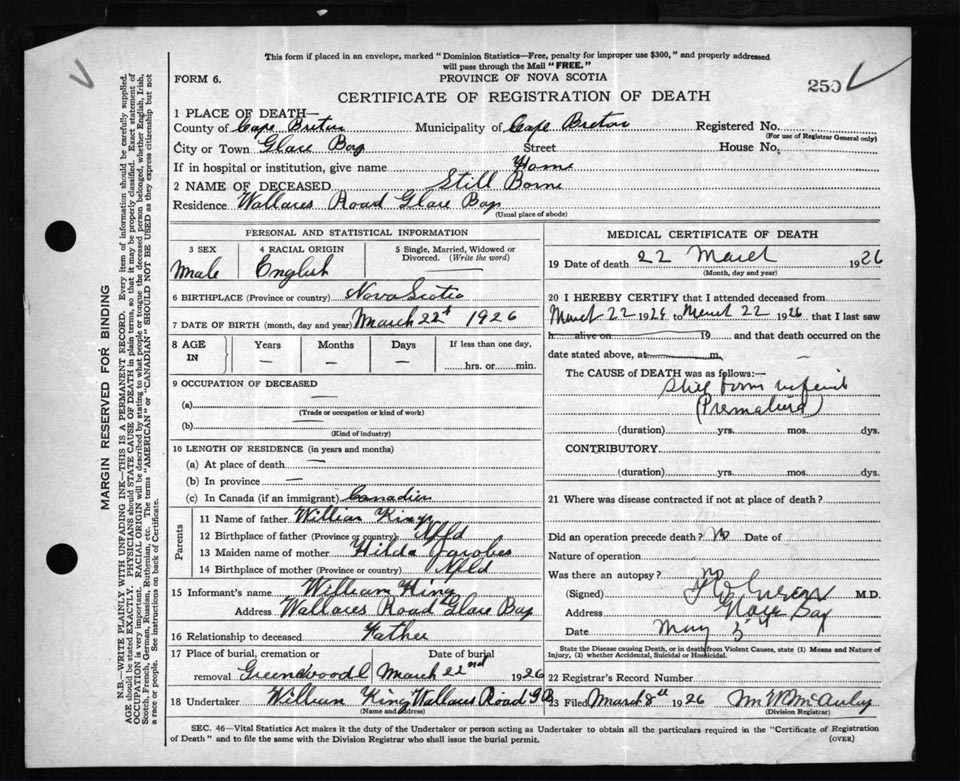 This form if placed in an envelope, marked "Dominion Statistics—Free, penalty for improper use $300," and properly addressed
will pass through the Mail "FREE."
FORM 6.
PROVINCE OF NOVA SCOTIA
250
CERTIFICATE OF REGISTRATION OF DEATH
1 PLACE OF DEATH—
County of Cape Breton Municipality of Cape Breton Registered No.
(For use of Registrar General only)
City or Town Glace Bay Street House No.
If in hospital or institution, give name Home
2 NAME OF DECEASED Still Borne
Residence Wallaces Road Glace Bay
(Usual place of abode)
PERSONAL AND STATISTICAL INFORMATION
3 SEX 4 RACIAL ORIGIN 5 Single, Married, Widowed or
Divorced. (Write the word)
Male English
6 BIRTHPLACE (Province or country) Nova Scotia
7 DATE OF BIRTH (month, day and year) March 22nd 1926
8 AGE IN Years Months Days If less than one day,
— — — hrs. or min.
9 OCCUPATION OF DECEASED —
(a)
(Trade or occupation or kind of work)
(b) —
(Kind of industry)
10 LENGTH OF RESIDENCE (in years and months)
(a) At place of death —
(b) In province —
(c) In Canada (if an immigrant) Canadien
Parents
11 Name of father William King
12 Birthplace of father (Province or country) Nfld
13 Maiden name of mother Hilda Jacobes
14 Birthplace of mother (Province or country) Nfld
15 Informant's name William King
Address Wallaces Road Glace Bay
16 Relationship to deceased Father
17 Place of burial, cremation or Date of burial
removal Greendwood March 22nd 1926
18 Undertaker William King Wallaces Road G B
(Name and address)
MEDICAL CERTIFICATE OF DEATH
19 Date of death 22 March 1926
(Month, day and year)
20 I HEREBY CERTIFY that I attended deceased from
March 22 1926 to March 22 1926 that I last saw
h alive on 19 and that death occurred on the
date stated above, at m.
The CAUSE OF DEATH was as follows:—
Still born infant
(Premature)
(duration) yrs. mos. dys.
CONTRIBUTORY
(duration) yrs. mos. dys.
21 Where was disease contracted if not at place of death?
Did an operation precede death? No Date of
Nature of operation
Was there an autopsy? no
(Signed) M.D.
Address Glace Bay
Date
State the Disease causing Death, or in death from Violent Causes, state (1) Means and Nature of
Injury, (2) whether Accidental, Suicidal or Homicidal.
22 Registrar's Record Number
23 Filed March 8th 1926 M W McAulay
(Division Registrar)
SEC. 46—Vital Statistics Act makes it the duty of the Undertaker or person acting as Undertaker to obtain all the particulars required in the "Certificate of Registration
of Death" and to file the same with the Division Registrar who shall issue the burial permit. (OVER)
MARGIN RESERVED FOR BINDING
N.B.—WRITE PLAINLY WITH UNFADING INK—THIS IS A PERMANENT RECORD. Every item of information should be carefully supplied.
AGE should be stated EXACTLY. PHYSICIANS should STATE CAUSE OF DEATH in plain terms, so that it may be properly classified. Exact statement of
OCCUPATION is very important. RACIAL ORIGIN will be described by stating to what people or tongue the deceased person belonged, whether English, Irish,
Scotch, French, German, Russian, Ruthenian, etc. The terms "AMERICAN" or "CANADIAN" SHOULD NOT BE USED as they express citizenship but not
a race or people. See instructions on back of Certificate.